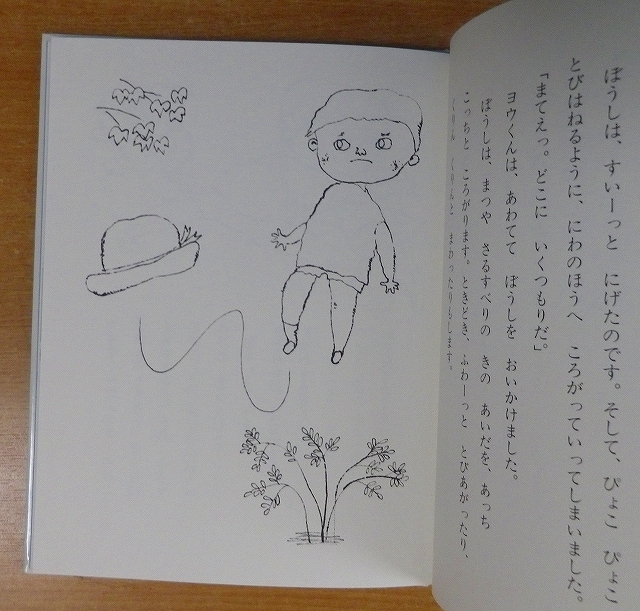 ぼうしは、すいーっと にげたのです。そして、ぴょこ ぴょこ
とびはねるように、にわのほうへ ころがっていってしまいました。
「まてえっ。どこに いくつもりだ。」
ヨウくんは、あわてて ぼうしを おいかけました。
ぼうしは、まつや さるすべりの きの あいだを、あっち
こっちと ころがります。ときどき、ふわーっと とびあがったり、
くりん くりんと まわったりもします。